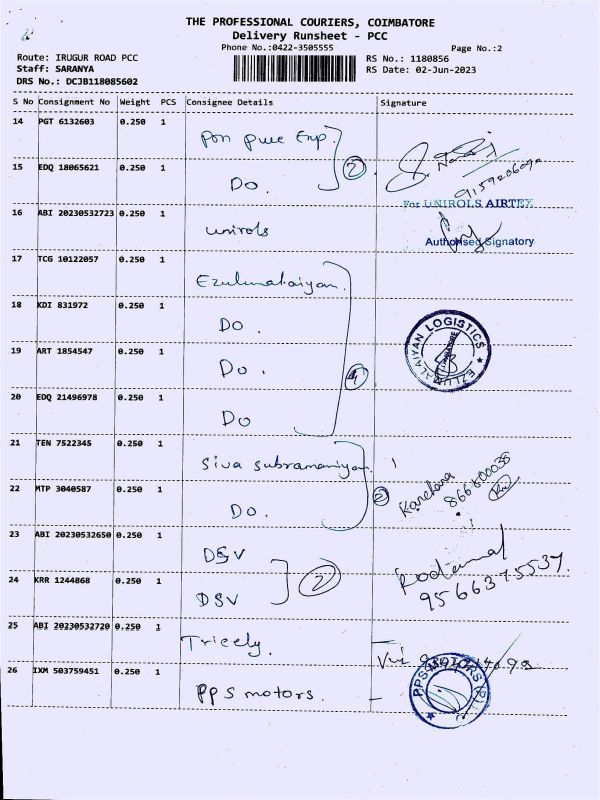 THE PROFESSIONAL COURIERS, COIMBATORE
Delivery Runsheet - PCC
Phone No.:0422-3505555
Page No.:2
Route: IRUGUR ROAD PCC
RS No.: 1180856
Staff: SARANYA
RS Date: 02-Jun-2023
DRS No.: DCJB118085602
S No Consignment No Weight PCS Consignee Details Signature
14 PGT 6132603 0.250 1 Pon pure Enp.
15 EDQ 18065621 0.250 1 Do. 2
For UNIROLS AIRTEX
16 ABI 20230532723 0.250 1 unirols
Authorised Signatory
17 TCG 10122057 0.250 1 Ezulumalaiyan.
18 KDI 831972 0.250 1 Do.
EZLUMALAIYAN LOGISTICS
19 ART 1854547 0.250 1 Do.
20 EDQ 21496978 0.250 1 Do 4
21 TEN 7522345 0.250 1 Siva subramaniyan.
22 MTP 3040587 0.250 1 Do. 2
23 ABI 20230532650 0.250 1 DSV
24 KRR 1244868 0.250 1 DSV 2
9566375537.
25 ABI 20230532720 0.250 1 Tricely.
26 IXM 503759451 0.250 1 PPS motors.
PPS MOTORS (P)